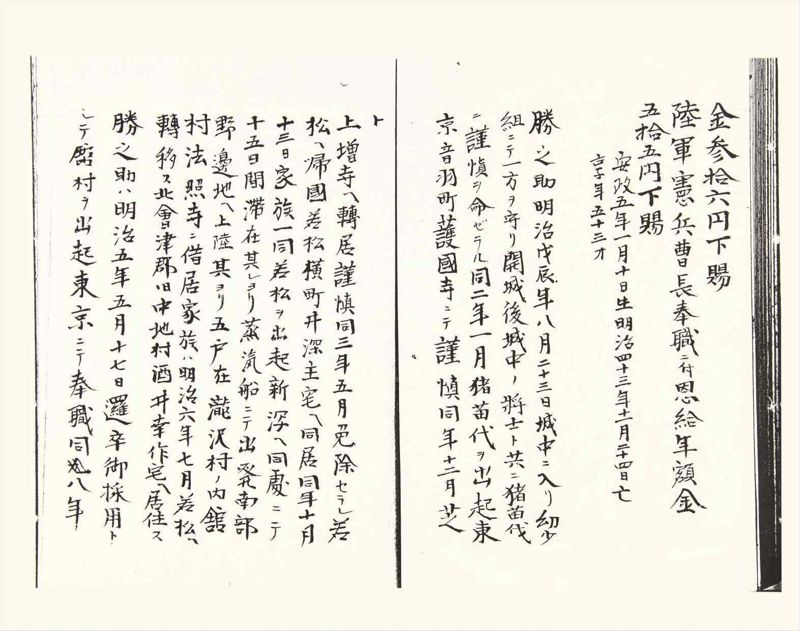 金参拾六円下賜
陸軍憲兵曹長奉職ニ付恩給年額金
五拾五円下賜
安政五年一月十日生明治四十三年十一月二十四日亡
享年五十三才
勝之助明治戊辰年八月二十三日城中ニ入リ幼少
組ニテ一方ヲ守リ開城後城中ノ将士ト共ニ猪苗代
ニ謹慎ヲ命ゼラル同二年一月猪苗代ヲ出起東
京音羽町護國寺ニテ謹慎同年十二月芝
ト
上増寺ヘ轉居謹慎同三年五月免除セラレ若
松ヘ帰國若松横町井深主宅ヘ同居同年十月
十三日家族一同若松ヲ出起新潟ヘ同處ニテ
十五日間滞在其レヨリ蒸気船ニテ出発南部
野邊地ヘ上陸其ヨリ五戸在瀧沢村ノ内舘
村法照寺ニ借居家族ハ明治六年七月若松ヘ
轉移ス北會津郡旧中地村酒井幸作宅ヘ居住ス
勝之助ハ明治五年五月十七日邏卒御採用ト
シテ舘村ヲ出起東京ニテ奉職同八年